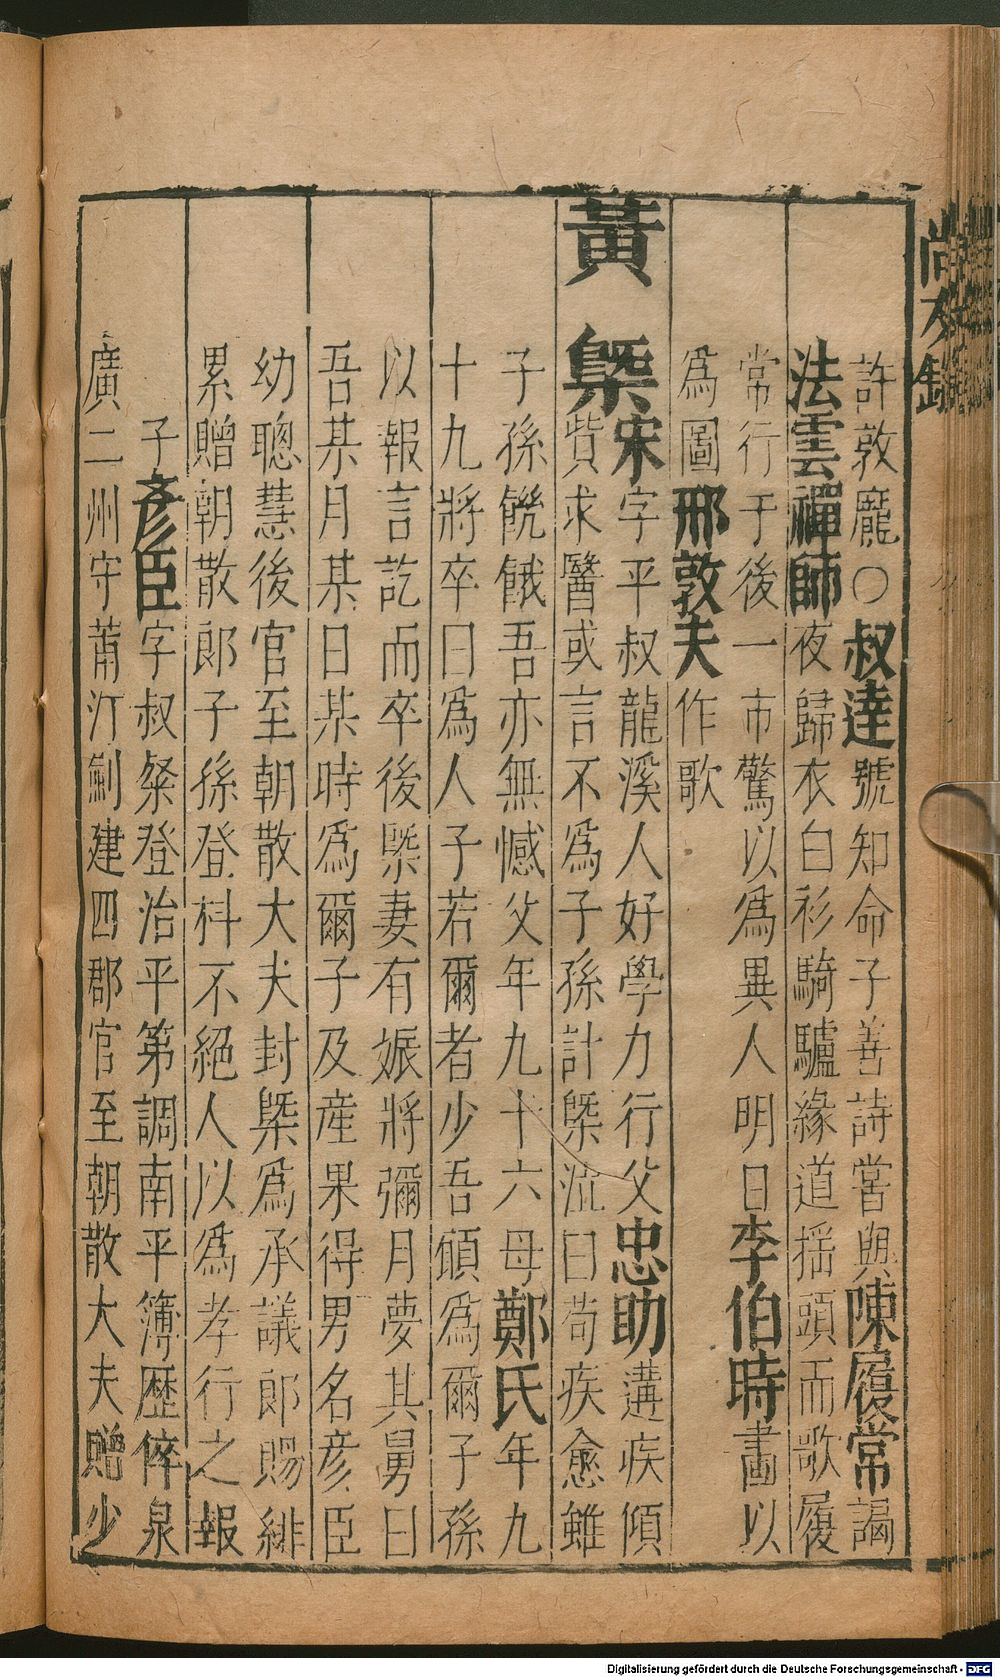 尚友錄
許敦龐○叔達號知命子善詩嘗與陳履常謁
法雲禪師夜歸衣白衫騎驢緣道揺頭而歌履
常行于後一市驚以爲異人明日李伯時畵以
爲圖邢敦夫作歌
黃㮣宋字平叔龍溪人好學力行父忠助遘疾傾
貲求醫或言不爲子孫計㮣泣曰苟疾愈雖
子孫饑餓吾亦無憾父年九十六母鄭氏年九
十九將卒曰爲人子若爾者少吾願爲爾子孫
以報言訖而卒後㮣妻有娠將彌月夢其舅曰
吾某月某日某時爲爾子及産果得男名彦臣
幼聰慧後官至朝散大夫封㮣爲承議郎賜緋
累贈朝散郎子孫登科不絕人以爲孝行之報
子彥臣字叔粲登治平第調南平簿歷倅泉
廣二州守莆汀劍建四郡官至朝散大夫贈少
Digitalisierung gefördert durch die Deutsche Forschungsgemeinschaft - DFG